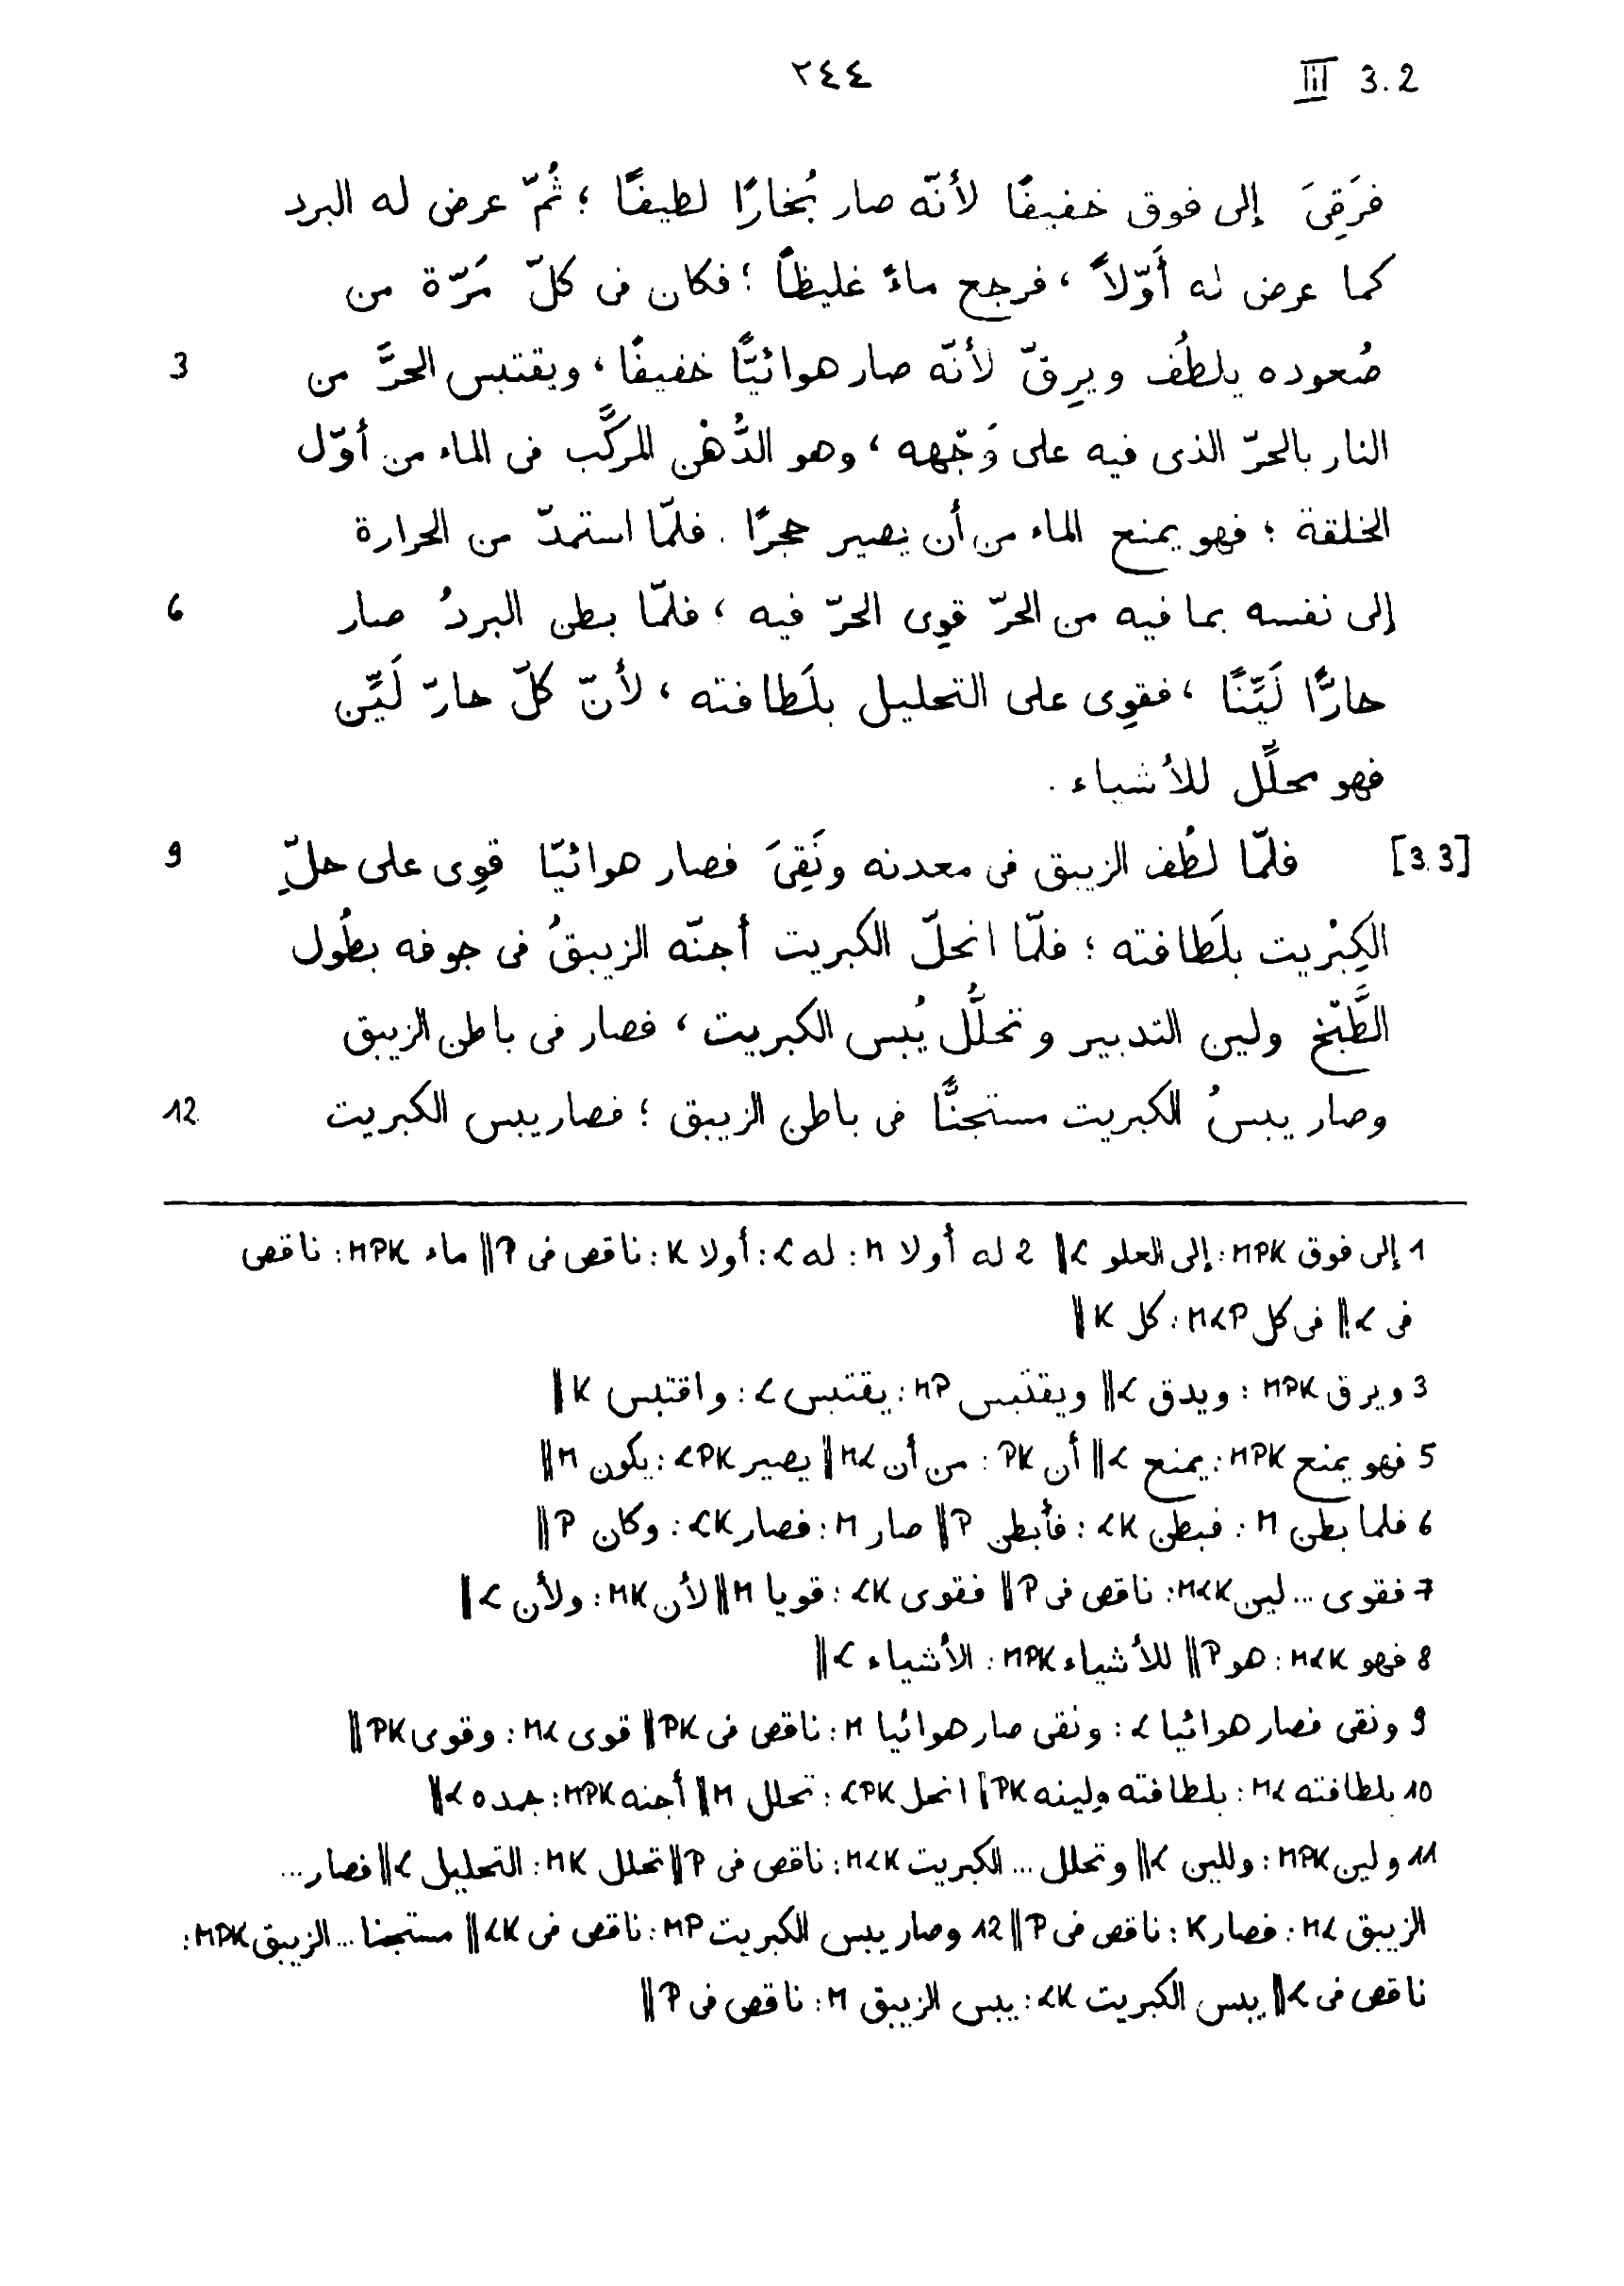 ٢٤٤ III 3.2
فرَقِىَ إلى فوق خفيفًا لأنّه صار بُخارًا لطيفًا ؛ ثُمّ عرض له البرد
كما عرض له أَوّلاً ، فرجع ماءً غليظاً ؛ فكان فى كلّ مَرّة من
3 صُعوده يلطُف ويرِقّ لأنّه صار هوائيًّا خفيفًا ، ويقتبس الحرَّ من
النار بالحرّ الذى فيه على وَجْهه ، وهو الدُّهْن المركَّب فى الماء من أوّل
الخلقة ؛ فهو يمنع الماء من أن يصير حجرًا . فلمّا استمدّ من الحرارة
6 إلى نفسه بما فيه من الحرّ قوِى الحرّ فيه ، فلمّا بطن البردُ صار
حارًّا لَيِّنًا ، فقوِى على التحليل بلَطافته ، لأنّ كلّ حارّ لَيِّن
فهو محلِّل للأشياء .
9 [3.3] فلمّا لطُف الزيبق فى معدنه ونَقِىَ فصار هوائيًا قوِى على حلِّ
الكِبْريت بلَطافته ؛ فلمّا انحلّ الكبريت أجنّه الزيبقُ فى جوفه بطُول
الطَّبْخ ولين التدبير وتحلُّل يُبس الكبريت ، فصار فى باطن الزيبق
12 وصار يبسُ الكبريت مستجنًّا فى باطن الزيبق ؛ فصار يبس الكبريت
1 إلى فوق MPK : إلى العلو L || 2 له أولا M : له L : أولا K : ناقص فى P || ماء MPK : ناقص
فى L || فى كل MLP : كل K ||
3 ويرق MPK : ويدق L || ويقتبس MP : يقتبس L : واقتبس K ||
5 فهو يمنع MPK : يمنع L || أن PK : من أن ML || يصير LPK : يكون M ||
6 فلما بطن M : فبطن LK : فأبطن P || صار M : فصار LK : وكان P ||
7 فقوى ... لين MLK : ناقص فى P || فقوى LK : قويا M || لأن MK : ولأن L ||
8 فهو MLK : هو P || للأشياء MPK : الأشياء L ||
9 ونقى فصار هوائيا L : ونقى صار هوائيا M : ناقص فى PK || قوى ML : وقوى PK ||
10 بلطافته ML : بلطافته ولينه PK || انحل LPK : تحلل M || أجنه MPK : جمده L ||
11 ولين MPK : وللين L || وتحلل ... الكبريت MLK : ناقص فى P || تحلل MK : التحليل L || فصار ...
الزيبق ML : فصار K : ناقص فى P || 12 وصار يبس الكبريت MP : ناقص فى LK || مستجنا ... الزيبق MPK :
ناقص فى L || يبس الكبريت LK : يبس الزيبق M : ناقص فى P ||